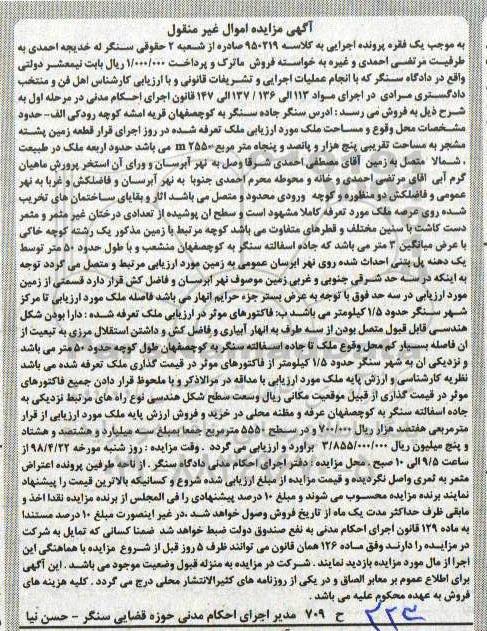 آگهی مزایده اموال غیر منقول
به موجب یک فقره پرونده اجرایی به کلاسه ۹۵۰۲۱۹ صادره از شعبه ۲ حقوقی سنگر له خدیجه احمدی به
طرفیت مرتضی احمدی و غیره به خواسته فروش ماترک و پرداخت ۱/۰۰۰/۰۰۰ ریال بابت نیمعشر دولتی
واقع در دادگاه سنگر که با انجام عملیات اجرایی و تشریفات قانونی و با ارزیابی کارشناس اهل فن و منتخب
دادگستری مرادی در اجرای مواد ۱۱۳ الی ۱۳۶ / ۱۳۷ الی ۱۴۷ قانون اجرای احکام مدنی در مرحله اول به
شرح ذیل به فروش می رسد : ادرس سنگر جاده سنگر به کوچصفهان قریه امشه کوچه رودکی الف- حدود
مشخصات محل وقوع و مساحت ملک مورد ارزیابی ملک تعرفه شده در روز اجرای قرار قطعه زمین پشته
مشجر به مساحت تقریبی پنج هزار و پانصد و پنجاه متر مربع m ۲۵۵۵۰ می باشد حدود اربعه ملک در طبیعت
. شمالا متصل به زمین آقای مصطفی احمدی شرقا وصل به نهر آبرسان و ورای آن استخر پرورش ماهیان
گرم آبی اقای مرتضی احمدی و خانه و محوطه محرم احمدی جنوبا به نهر آبرسان و فاضلکش و غربا به نهر
عمومی و فاضلکش دو منظوره و کوچه ورودی محدود و متصل می باشد آثار و بقایای ساختمان های تخریب
شده روی عرصه ملک مورد تعرفه کاملا مشهود است و سطح ان پوشیده از تعدادی درختان غیر مثمر و مثمر
دست کاشت با سنین مختلف و قطرهای متفاوت می باشد کوچه مرتبط با زمین مذکور یک رشته کوچه خاکی
با عرض میانگین ۳ متر می باشد که جاده اسفالته سنگر به کوچصفهان منشعب و با طول حدود ۵۰ متر توسط
یک دهنه پل بتنی احداث شده روی نهر ابرسان عمومی به زمین مورد ارزیابی مرتبط و متصل می گردد توجه
به اینکه در سه حد شرقی جنوبی و غربی زمین موصوف نهر ابرسان و فاضل کش قرار دارد قسمتی از زمین
مورد ارزیابی در سه حد فوق با توجه به عرض بستر جزء حرایم انهار می باشد فاصله ملک مورد ارزیابی تا مرکز
شهر سنگر حدود ۱/۵ کیلومتر می باشد ب: فاکتورهای موثر در ارزیابی ملک تعرفه شده : دارا بودن شکل
هندسی قابل قبول متصل بودن از سه طرف به انهار آبیاری و فاضل کش و داشتن استقلال مرزی به تبعیت از
ان فاصله بسیار کم محل وقوع ملک تا جاده اسفالته سنگر به کوچصفهان طول کوچه حدود ۵۰ متر می باشد
و نزدیکی ان به شهر سنگر حدود ۱/۵ کیلومتر از فاکتورهای موثر در قیمت گذاری ملک تعرفه شده می باشد
نظریه کارشناسی و ارزش پایه ملک مورد ارزیابی با مداقه در مرالاذکر و با ملحوظ قرار دادن جمیع فاکتورهای
موثر در قیمت گذاری از قبیل موقعیت مکانی ریال وسعت سطح شکل هندسی نوع راه های مرتبط نزدیکی به
جاده اسفالته سنگر به کوچصفهان عرفه و مظنه محلی در خرید و فروش ارزش پایه ملک مورد ارزیابی از قرار
مترمربعی هفتصد هزار ریال ۷۰۰/۰۰۰ و در سطح ۵۵۵۰ مترمربع جمعا بمبلغ سه میلیارد و هشتصد و هشتاد
و پنج میلیون ریال ۳/۸۵۵/۰۰۰/۰۰۰ براورد و ارزیابی می گردد . وقت مزایده : روز شنبه مورخه ۹۸/۴/۲۲ از
ساعت ۹/۵ الی ۱۰ صبح . محل مزایده : دفتر اجرای احکام مدنی دادگاه سنگر . از ناحه طرفین پرونده اعتراض
مثمر به ثمری واصل نگردیده و قیمت مزایده از مبلغ ارزیابی شده شروع و کسانیکه بالاترین قیمت را پیشنهاد
نمایند برنده مزایده محسوب می شوند و مبلغ ۱۰ درصد پیشنهادی را فی المجلس از برنده مزایده نقدا اخذ و
مابقی ظرف حداکثر مدت یک ماه از تاریخ فروش وصول خواهد شد .در غیر اینصورت مبلغ ۱۰ درصد مستندا
به ماده ۱۲۹ قانون اجرای احکام مدنی به نفع صندوق دولت ضبط خواهد شد ضمنا کسانی که تمایل به شرکت
در مزایده را دارند وفق ماده ۱۲۶ همان قانون می توانند ظرف ۵ روز قبل از شروع مزایده با هماهنگی این
اجرا از مال مورد مزایده بازدید نمایند . شرکت در مزایده به منزله قبول وضعیت موجود می باشد . این آگهی
برای اطلاع عموم بر معابر الصاق و در یکی از روزنامه های کثیرالانتشار محلی درج می گردد . کلیه هزینه های
فروش به عهده محکوم علیه می باشد .
ح ۷۰۹ مدیر اجرای احکام مدنی حوزه قضایی سنگر - حسن نیا